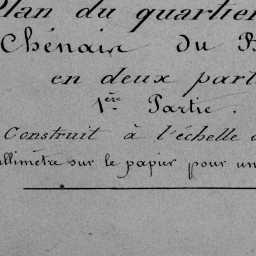 Plan du quartier
Chénaix du B
en deux part
1ère Partie.
Construit à l'échelle d
illimètre sur le papier pour un